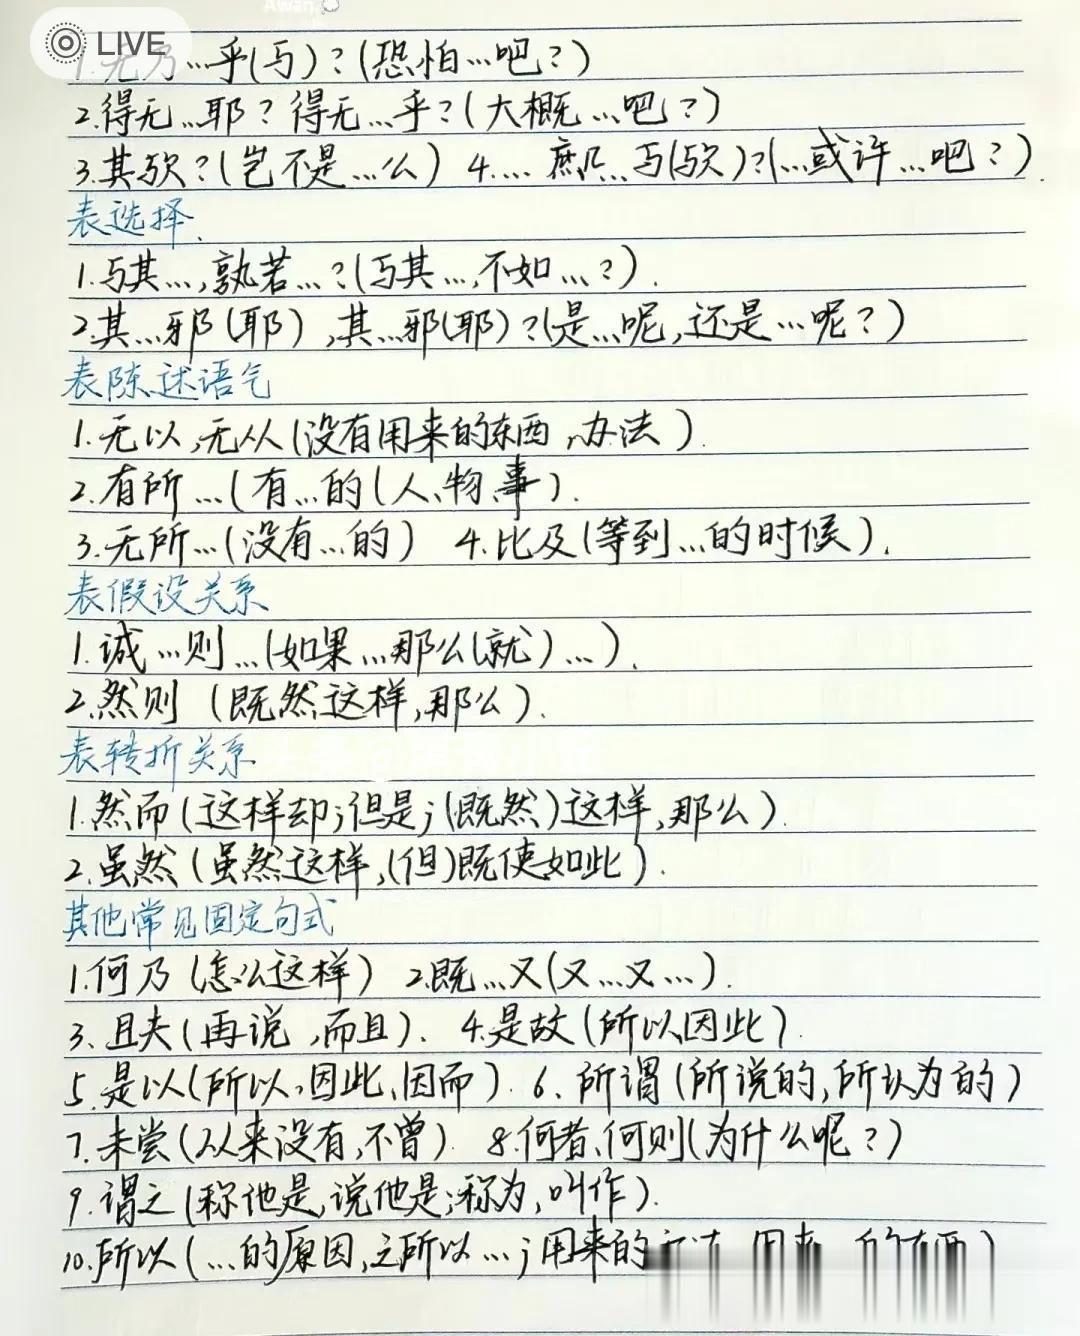 Awan.
LIVE
1.无乃…乎(与)?(恐怕…吧?)
2.得无…耶?得无…乎?(大概…吧?)
3.其欤?(岂不是…么) 4.…庶几…与(欤)?(…或许…吧?).
表选择.
1.与其…,孰若…?(与其…,不如…?).
2.其…邪(耶),其…邪(耶)?(是…呢,还是…呢?)
表陈述语气
1.无以,无从(没有用来的东西,办法).
2.有所…(有…的(人、物、事).
3.无所…(没有…的) 4.比及(等到…的时候).
表假设关系
1.诚…则…(如果…那么(就)…).
2.然则(既然这样,那么).
表转折关系
1.然而(这样却;但是;(既然)这样,那么).
2.虽然(虽然这样,(但)既使如此).
其他常见固定句式
1.何乃(怎么这样) 2.既…又(又…又…).
3.且夫(再说,而且). 4.是故(所以因此).
5.是以(所以,因此,因而). 6.所谓(所说的,所认为的)
7.未尝(从来没有,不曾). 8.何者、何则(为什么呢?)
9.谓之(称他是,说他是;称为,叫作).
10.所以(…的原因,之所以…;用来的